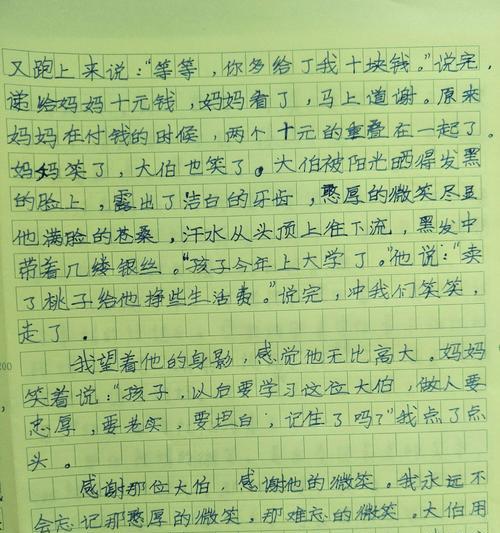 又跑上来说：“等等，你多给了我十块钱。”说完，
递给妈妈十元钱，妈妈看了，马上道谢。原来
妈妈在付钱的时候，两个十元的重叠在一起了。
妈妈笑了，大伯也笑了。大伯被阳光晒得发黑
的脸上，露出了洁白的牙齿，憨厚的微笑尽显
他满脸的苍桑，汗水从头顶上往下流，黑发中
带着几缕银丝。“孩子今年上大学了。”他说：“卖
了桃子给他挣些生活费。”说完，冲我们笑笑，
走了。
我望着他的身影，感觉他无比高大。妈妈
笑着说：“孩子，以后要学习这位大伯，做人要
忠厚，要老实，要坦白，记住了吗？”我点了点
头。
感谢那位大伯，感谢他的微笑。我永远不
会忘记那憨厚的微笑，那难忘的微笑。大伯用
200